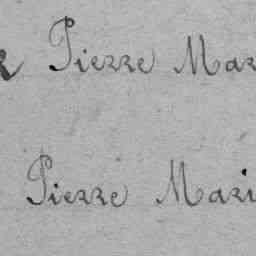 Pierre Mar
Pierre Mari